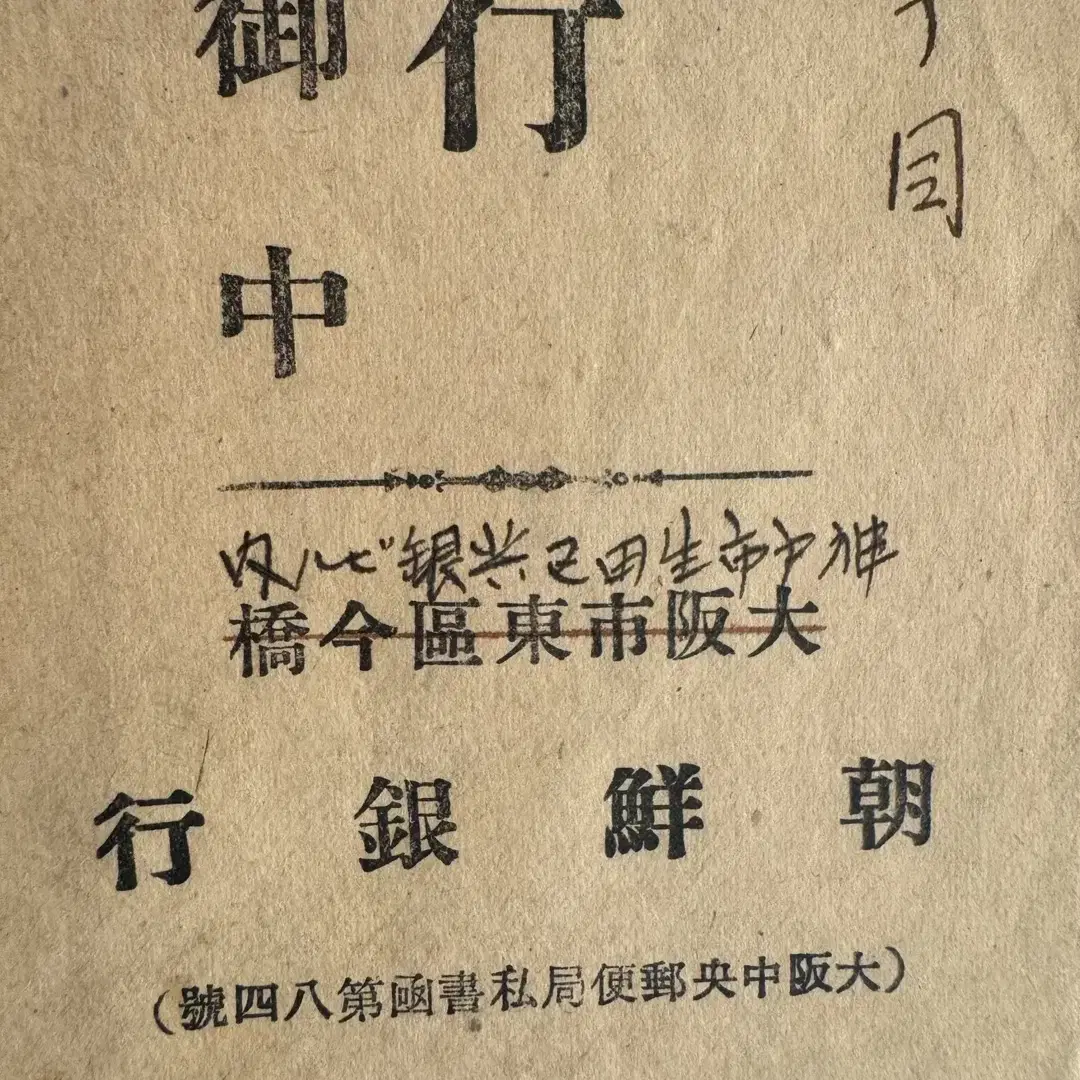 目
行
御中
神戸市生田区興銀ビル内
大阪市東區今橋
朝鮮銀行
(大阪中央郵便局私書函第八四號)